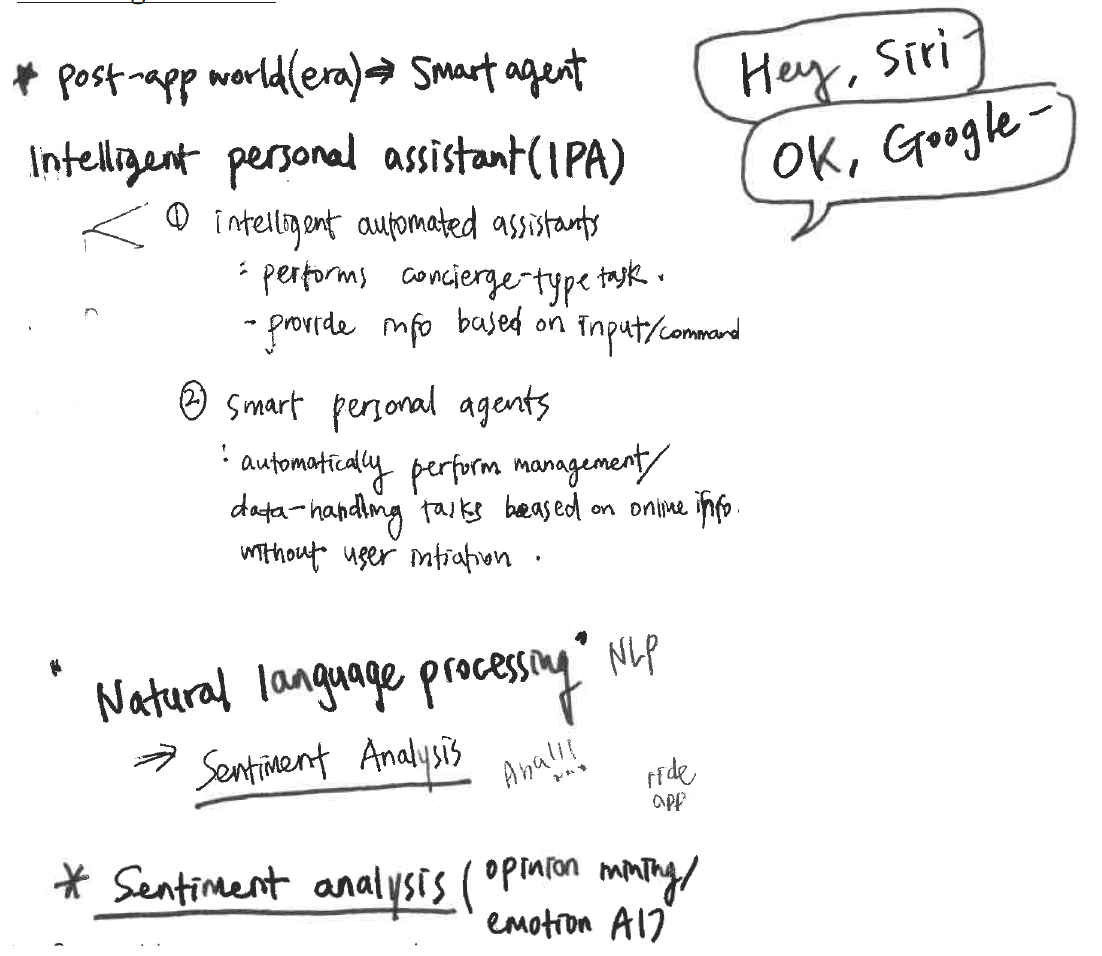 * post-app world(era) ⇒ Smart agent
Hey, Siri -
OK, Google -
Intelligent personal assistant(IPA)
① intelligent automated assistants
: performs concierge-type task.
- provide info based on input/command
② smart personal agents
: automatically perform management/
data-handling tasks beased on online info.
without user initiation.
"Natural language processing" NLP
⇒ Sentiment Analysis
ride
app
* Sentiment analysis (opinion mining/
emotion AI)